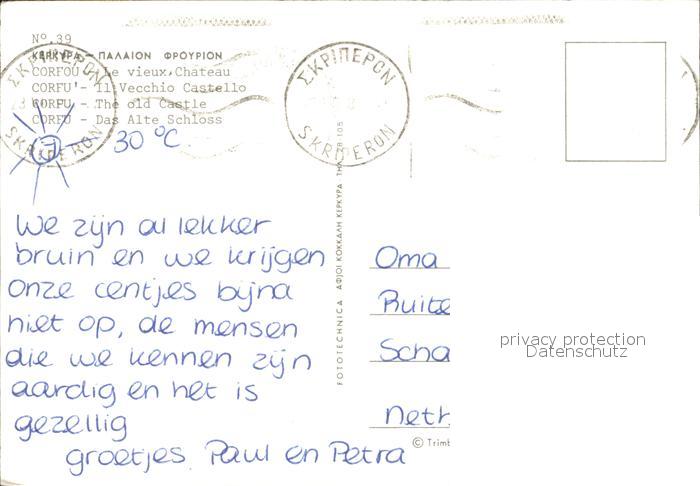 No. 39
ΚΕΡΚΥΡΑ — ΠΑΛΑΙΟΝ ΦΡΟΥΡΙΟΝ
CORFOU - Le vieux Château
CORFU - Il Vecchio Castello
CORFU - The old Castle
CORFU - Das Alte Schloss
ΣΚΡΙΠΕΡΟΝ
SKRIPERON
ΣΚΡΙΠΕΡΟΝ
SKRIPERON
30 °C
We zijn al lekker
bruin en we krijgen
onze centjes bijna
niet op, de mensen
die we kennen zijn
aardig en het is
gezellig
groetjes Paul en Petra
FOTOTECHNICA ΑΦΙΟΙ ΚΟΚΚΑΛΗ ΚΕΡΚΥΡΑ ΤΗΛ. 28 105
Oma
Ruite
Scha
Neth
privacy protection
Datenschutz
© Trimb